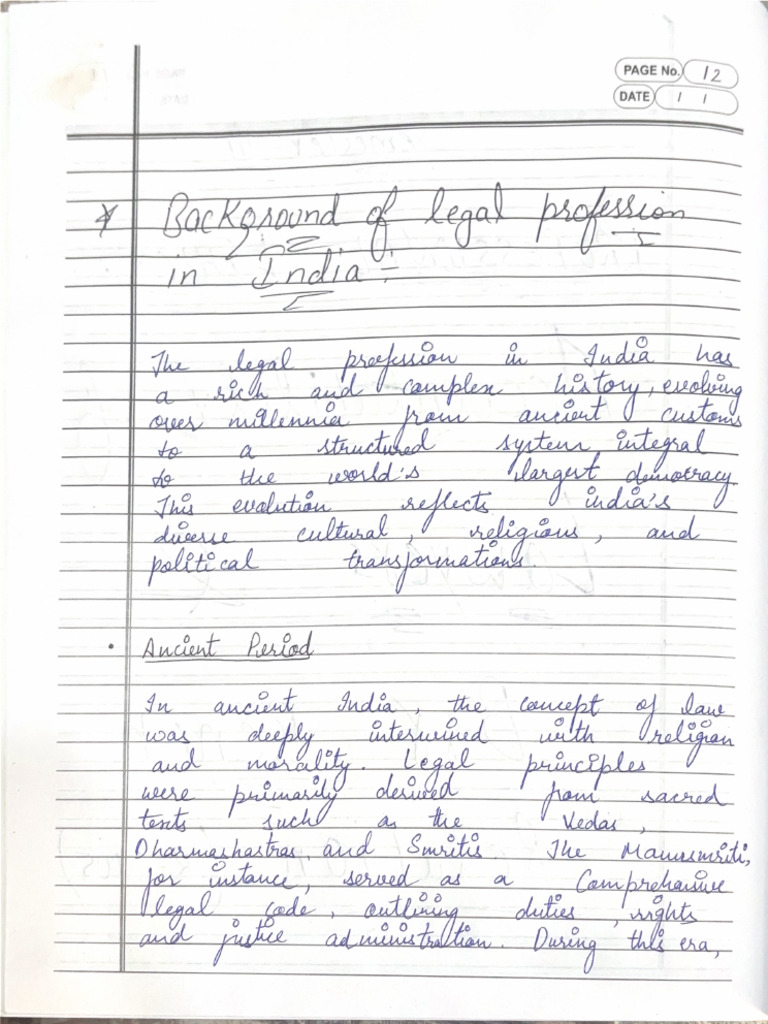 PAGE No. 12
DATE / /
* Background of legal profession
in India :-
The legal profession in India has
a rich and complex history, evolving
over millennia from ancient customs
to a structured system integral
to the world's largest democracy.
This evolution reflects india's
diverse cultural, religious, and
political transformations.
• Ancient Period
In ancient India, the concept of law
was deeply interwined with religion
and morality. Legal principles
were primarily derived from sacred
texts, such as the Vedas,
Dharmashastras, and Smritis. The Manusmriti,
for instance, served as a Comprehensive
legal code, outlining duties, rights
and justice administration. During this era,